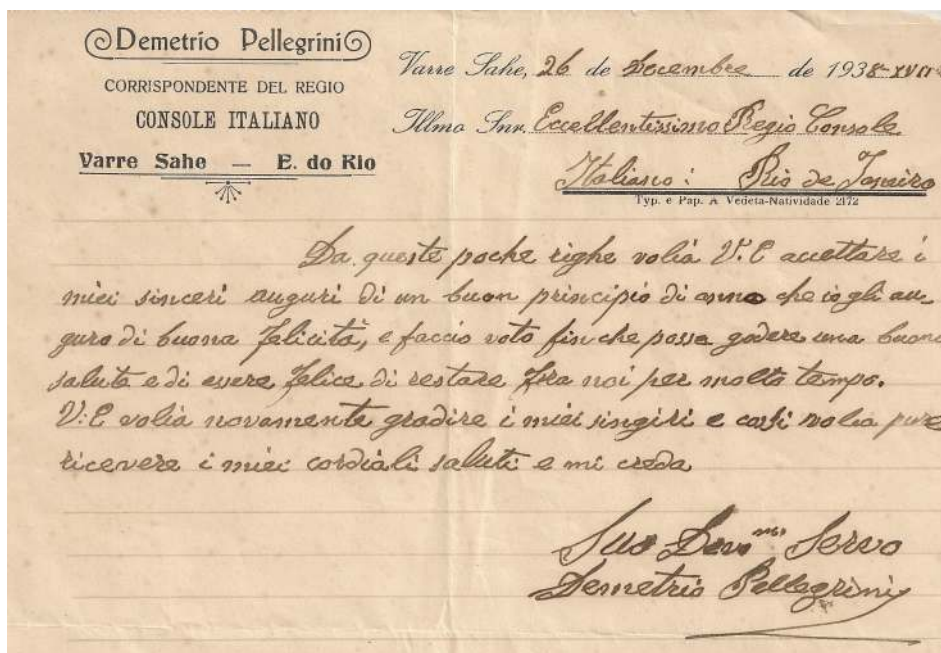 Demetrio Pellegrini
CORRISPONDENTE DEL REGIO
CONSOLE ITALIANO
Varre Sahe — E. do Rio
Varre Sahe, 26 de Decembre de 1938-XVII
Illmo Snr. Eccellentissimo Regio Console
Italiano: Rio de Janeiro
Typ. e Pap. A Vedeta-Natividade 2172
Da queste poche righe volià V.E accettare i
miei sinceri auguri di un buon principio di anno che io gli au-
guro di buona felicità, e faccio voto finche possa godere una buona
saluta e di essere felice di restare fra noi per molto tempo.
V.E volià novamente gradire i miei singiri e cossi volia pure
ricevere i miei cordiali saluti e mi creda
Suo Devmo Servo
Demetrio Pellegrini